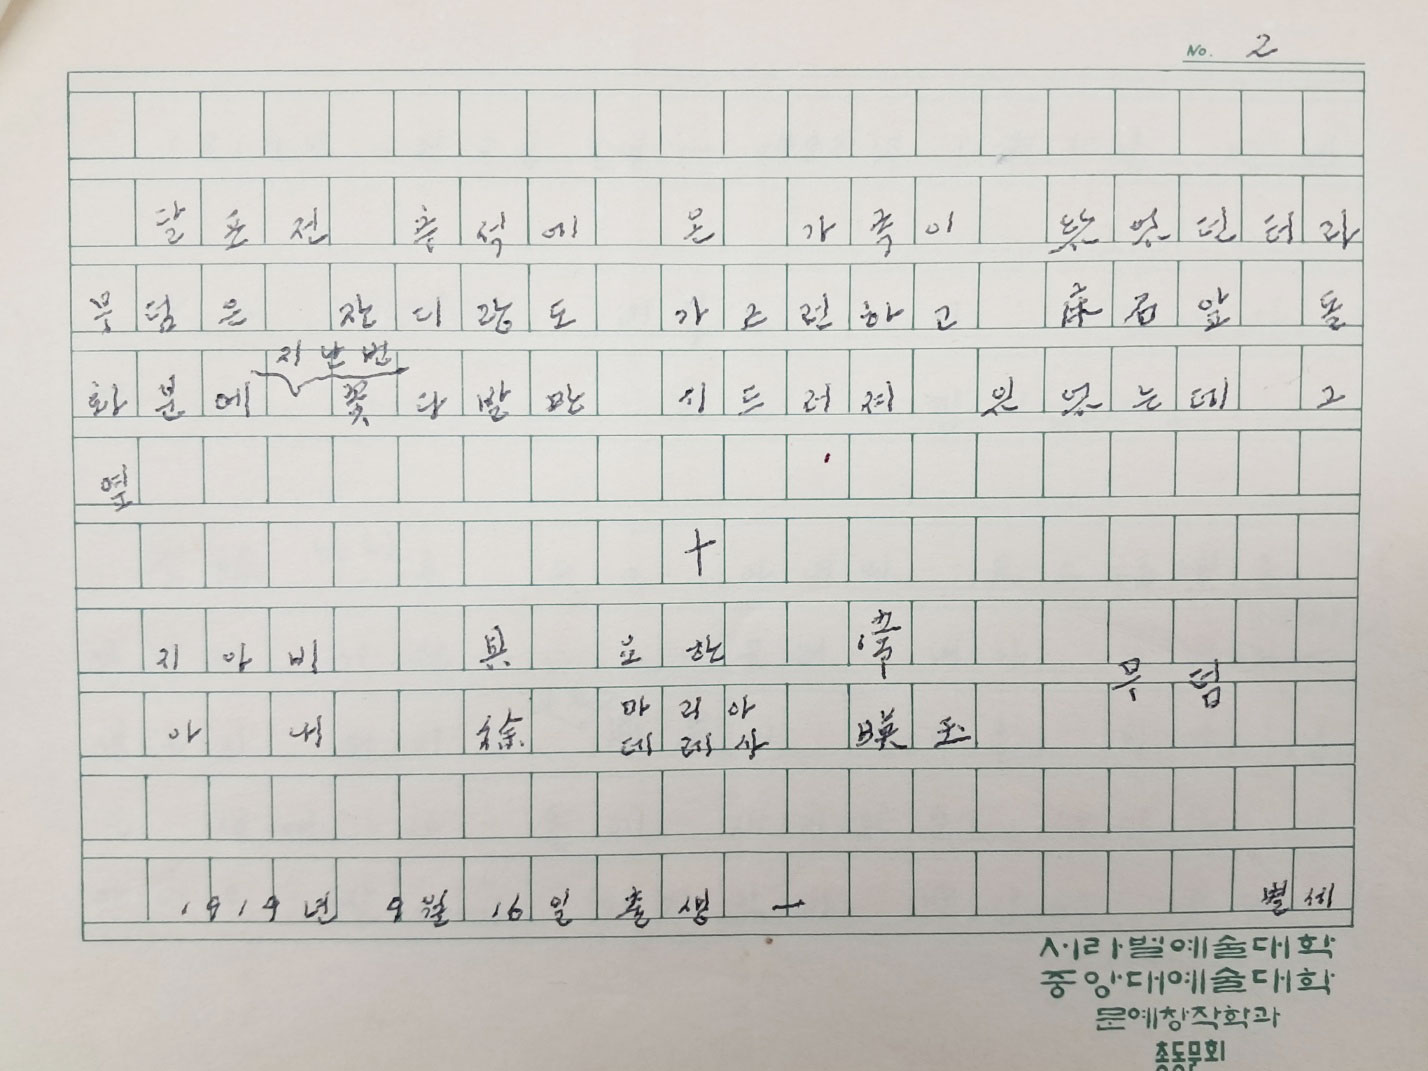 No. 2
달포전 추석에 온 가족이 왔었던터라
무덤은 잔디랑도 가즈런하고 床石앞 돌
지난번
화분에 꽃다발만 시드러져 있었는데 그
옆
十
지아비 具 요한 常 무덤
아내 徐 마리아 데레사 暎玉
1919년 9월 16일 출생 一 별세
서라벌예술대학
중앙대예술대학
문예창작학과
총동문회